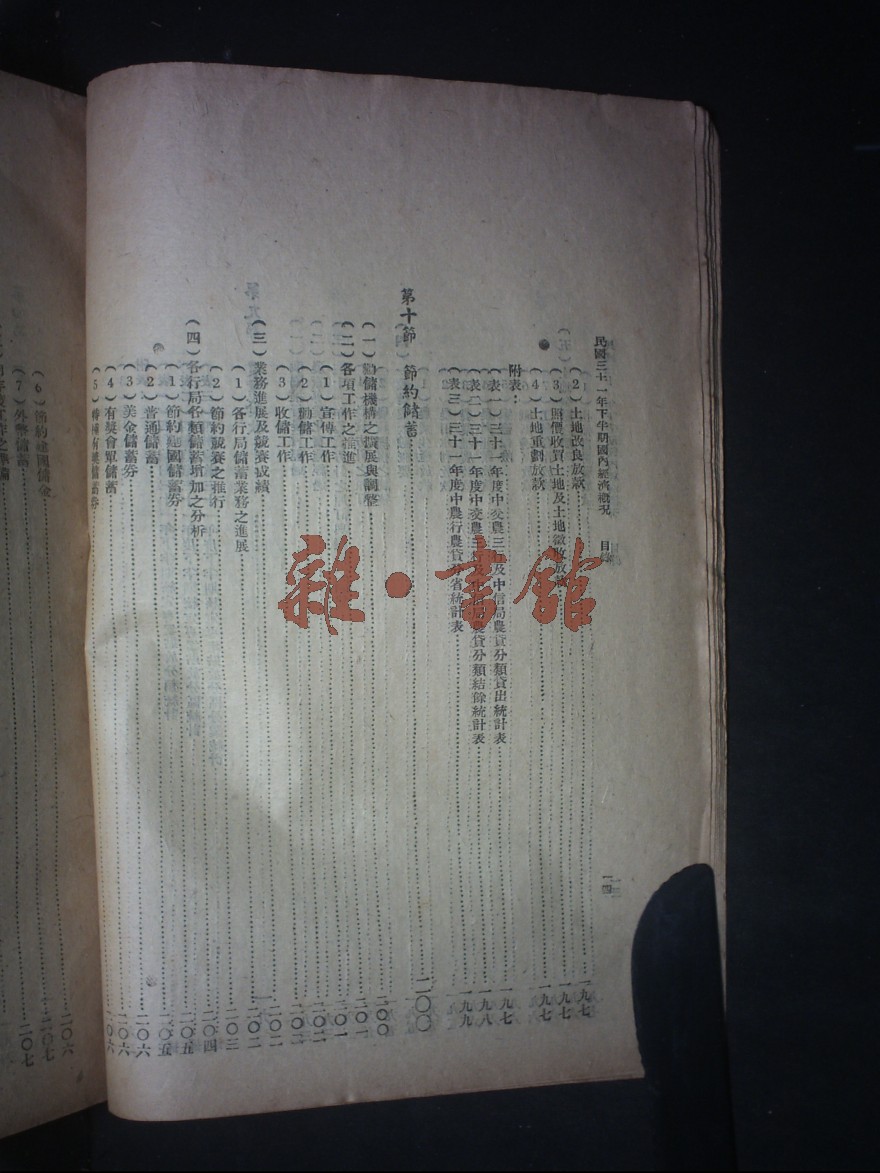 民國三十一年下半期國內經濟概況 目錄 一四
(2)土地改良放款 一九七
(3)照價收買土地及土地徵收放款 一九七
(4)土地重劃放款 一九七
附表：
(表一)三十一年度中交農三行及中信局農貸分類貸出統計表 一九七
(表二)三十一年度中交農三行及中信局農貸分類結餘統計表 一九八
(表三)三十一年度中農行農貸分省統計表 一九九
第十節 節約儲蓄 二〇〇
(一)勸儲機構之擴展與調整 二〇〇
(二)各項工作之推進 二〇一
(1)宣傳工作 二〇一
(2)勸儲工作 二〇二
(3)收儲工作 二〇二
(三)業務進展及競賽成績 二〇二
(1)各行局儲蓄業務之進展 二〇三
(2)節約競賽之推行 二〇四
(四)各行局各類儲蓄增加之分析 二〇五
(1)節約建國儲蓄券 二〇五
(2)普通儲蓄 二〇六
(3)美金儲蓄券 二〇六
(4)有獎會單儲蓄 二〇六
(5)特種有獎儲蓄券
(6)節約建國儲金 二〇六
(7)外幣儲蓄 二〇七
工作之準備 二〇七
雜·書館